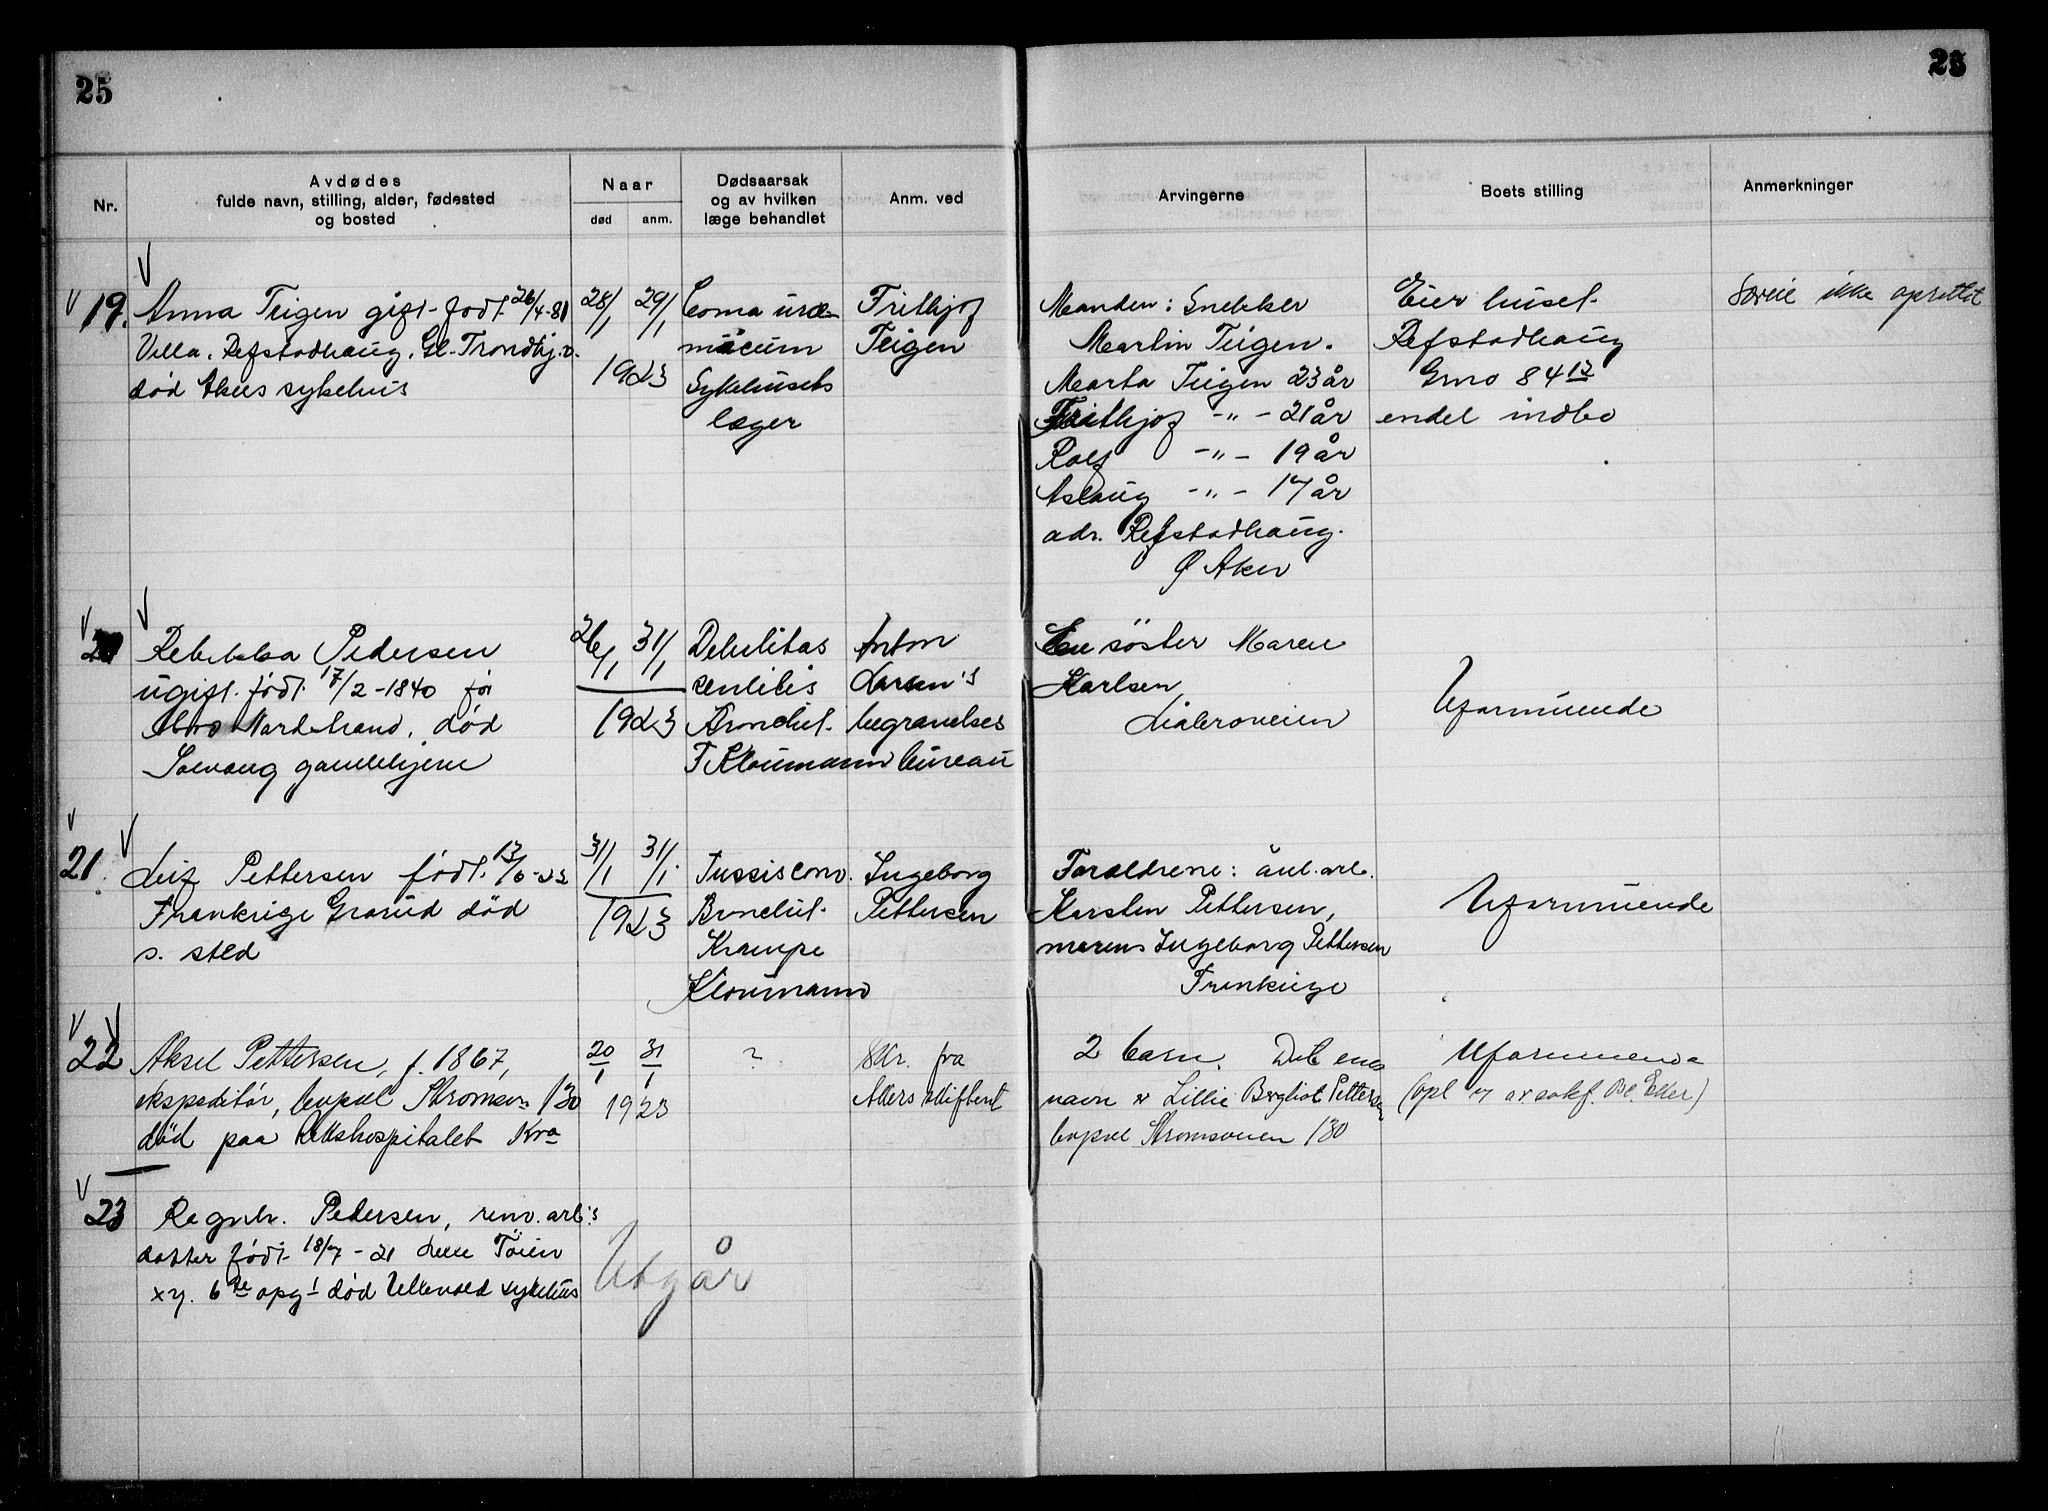 25
25
Nr.
Avdødes
fulde navn, stilling, alder, fødested
og bosted
Naar
død
anm.
Dødsaarsak
og av hvilken
læge behandlet
Anm. ved
Arvingerne
Boets stilling
Anmerkninger
19.
Anna Teigen gift. født 26/4-81
Villa. Refstadhaug. Gl. Trondhj.v.
død Akers sykehus
28/1 29/1
1923
Coma uræ-
micum
Sykehusets
læger
Frithjof
Teigen
Manden: Snekker
Martin Teigen.
Marta Teigen 23 år
Frithjof -"- 21 år
Rolf -"- 19 år
Aslaug -"- 17 år
adr. Refstadhaug.
Ø Aker
Eier huset
Refstadhaug
Gno 84 12
endel indbo
Særeie ikke oprettet
20
Rebekka Pedersen
ugift. født 17/2-1840
Nordstrand, død
Solvang gamlehjem
26/1 31/1
1923
Debilitas
senilis
Bronchit.
F Kloumann
Anton
Larsen's
begravelses
bureau
En søster Maren
Karlsen
Ljabroveien
Uformuende
21.
Leif Pettersen født 13/6-22
Frankrige Grorud død
s. sted
31/1 31/1
1923
Tussis conv.
Bronchit.
Krampe
Kloumann
Ingeborg
Pettersen
Forældrene: anl. arb.
Karsten Pettersen,
morens Ingeborg Pettersen
Frankrige
Uformuende
22
Aksel Pettersen, f. 1867,
ekspeditør, bopæl Strømsv. 130
død paa Rikshospitalet Kra
20/1 31/1
1923
?
Skr. fra
Akers skifteret
2 barn. Det enes
navn er Lillie Bergliot Pettersen
bopæl Strømsveien 130
Uformuende
(opl
23
Ragnh. Pedersen, renv. arb.'s
datter født 18/7-21 Tøien
død Ullevold sykehus
Utgår